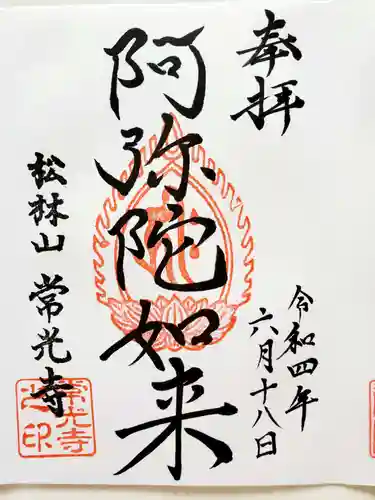 奉拝
令和四年
六月十八日
阿弥陀如来
松林山 常光寺
常光寺
之印